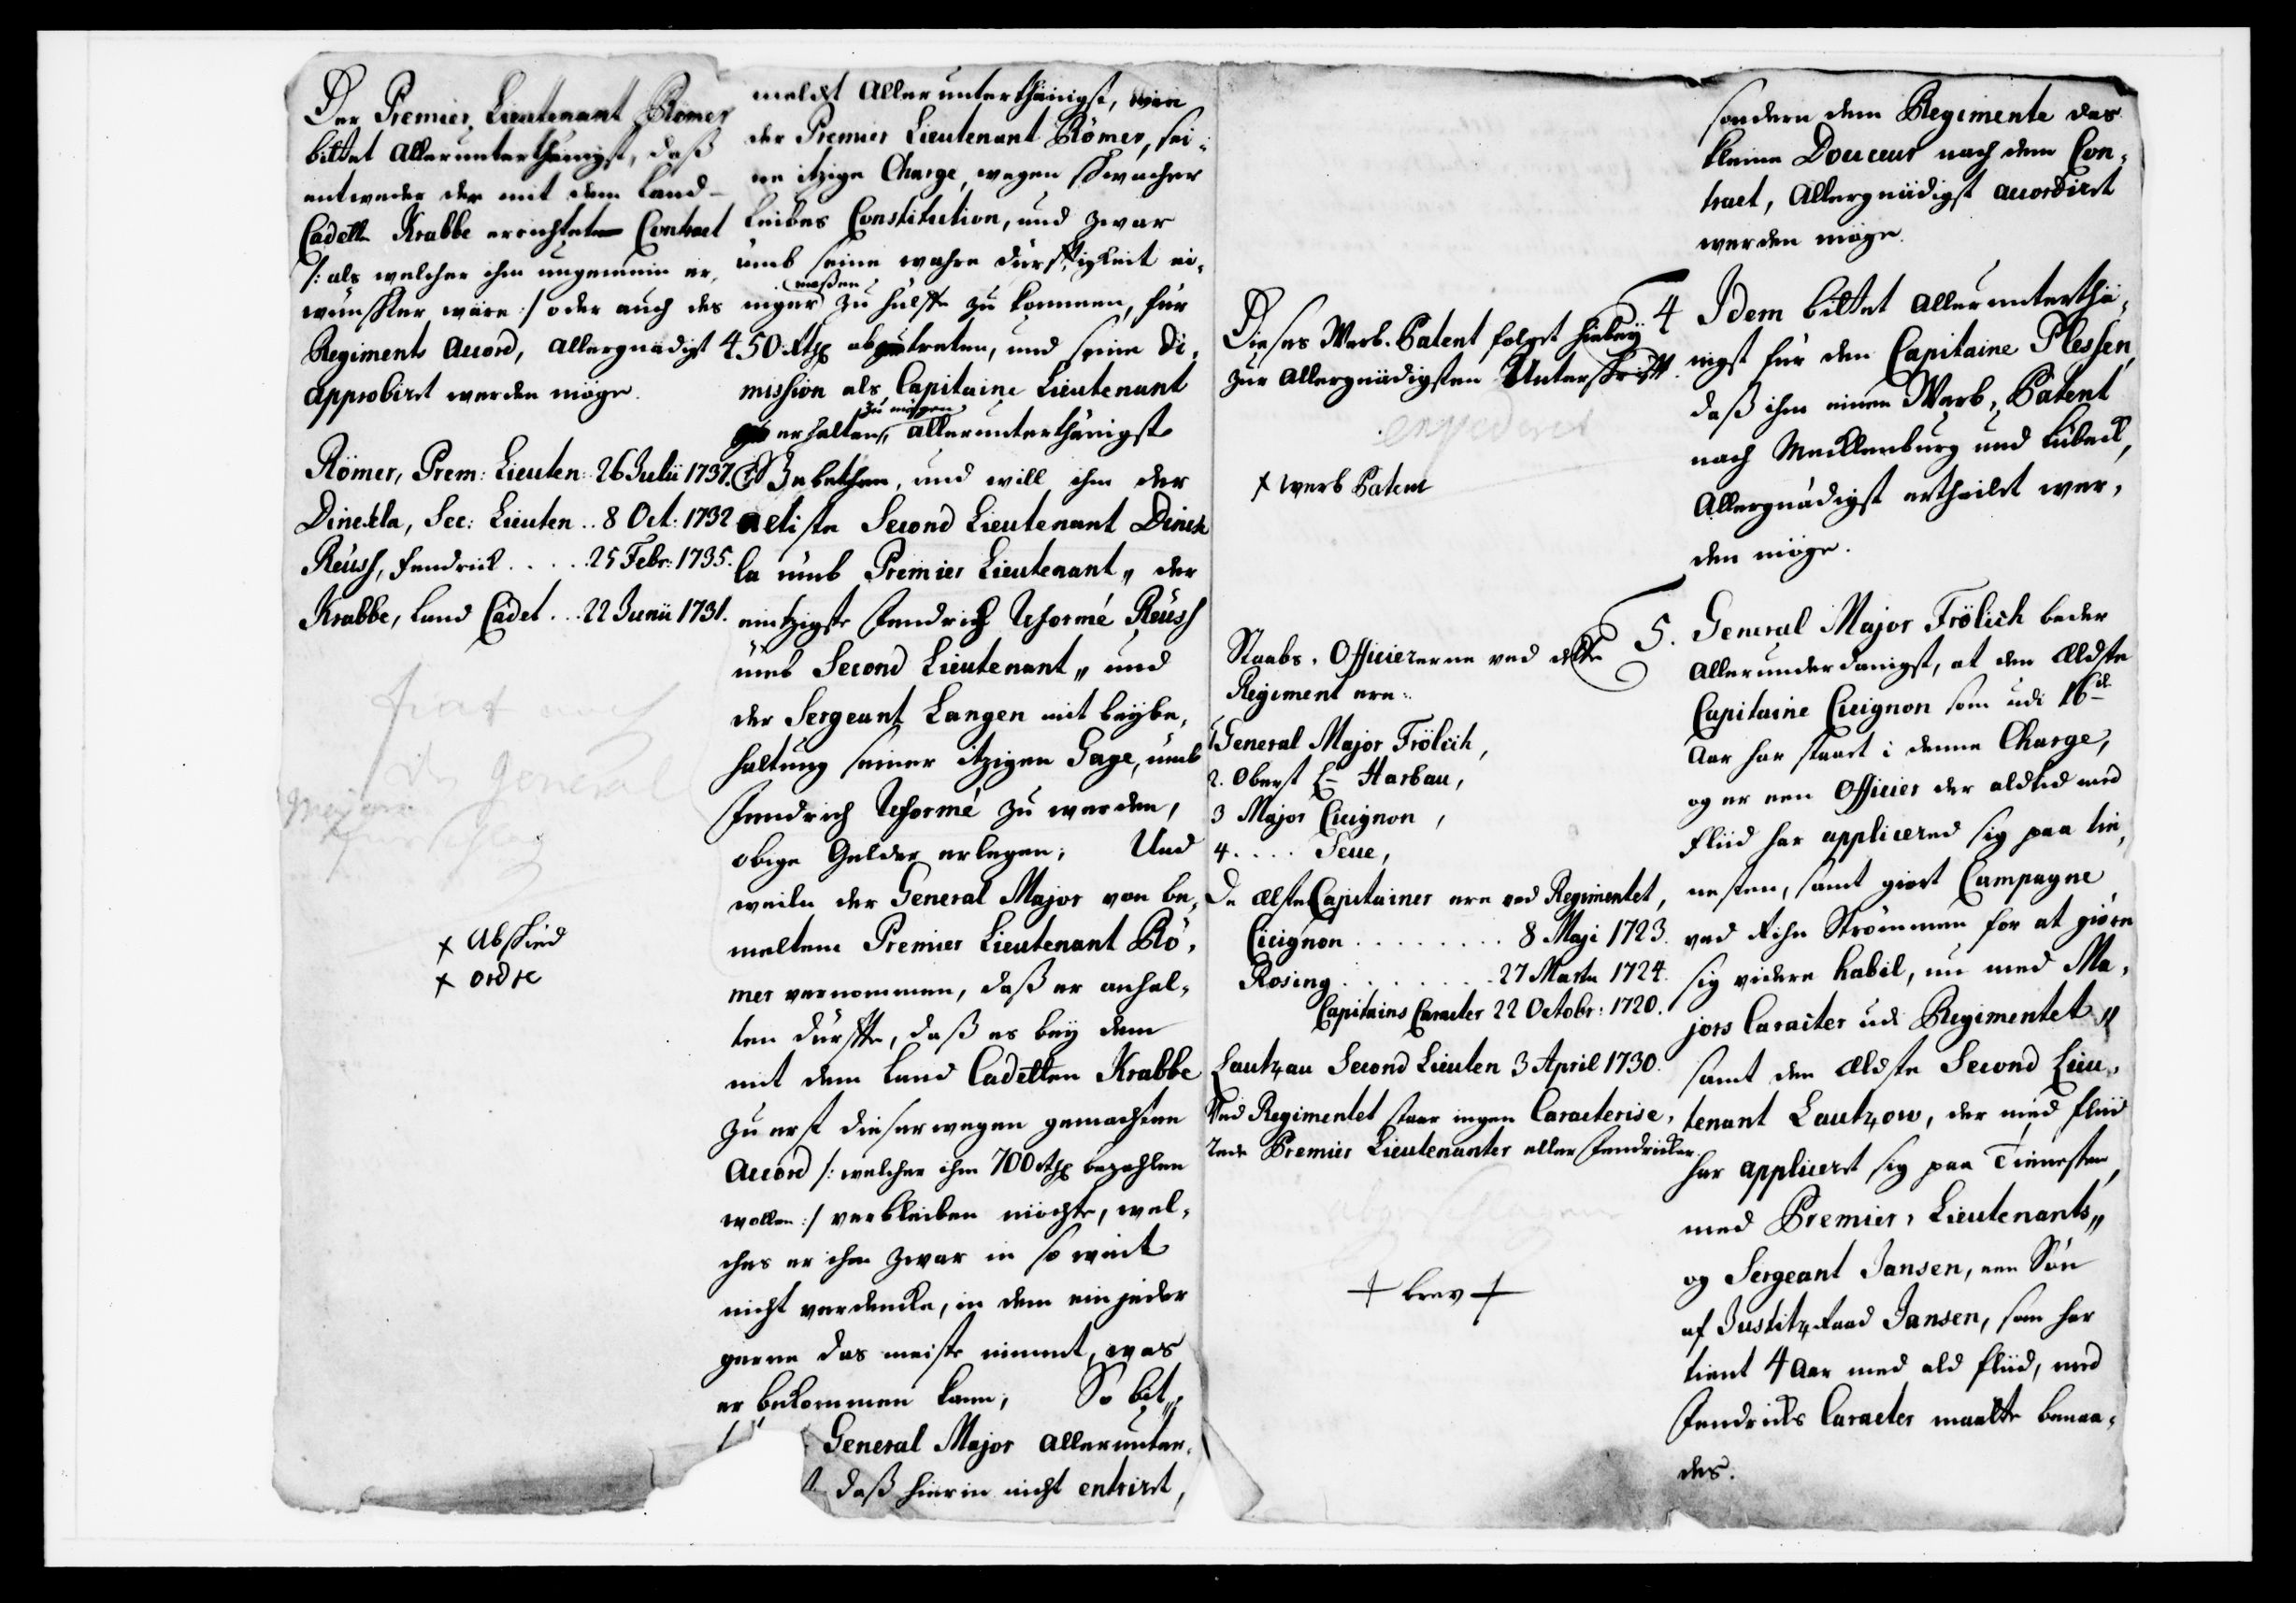 Der Premier Lieutenant Römer
bittet allerunterthänigst, daß
entweder der mit dem Land-
Cadette Krabbe errichtete Contract
/: als welcher ihm ungemein er-
wünschter wäre :/ oder auch des
Regiments Accord, allergnädigst
approbiret werden möge.
Römer, Prem: Lieuten: 26 Julii 1737.
Dinckla, Sec: Lieuten .. 8 Oct: 1732
Reuss, Fendrich .... 25 Febr: 1735.
Krabbe, Land Cadet ... 22 Junii 1731.
fiat nach
des General
Majors
Vorschlag
+ Abschied
+ ordre
meldet allerunterthänigst, wie
der Premier Lieutenant Römer, sei-
ne itzige Charge, wegen schwacher
Leibes Constitution, und zwar
umb seine wahre Dürfftigkeit ei-
niger maßen zu hülffe zu kommen, für
450 Rthl abzutreten, und seine Di-
mission als Capitaine Lieutenant
erhalten zu mögen, allerunterthänigst
gebethen, und will ihm der
eltiste Second Lieutenant Dinck
la umb Premier Lieutenant „ der
eintzigste Fendrich Reformé Reuss
umb Second Lieutenant „ und
der Sergeant Langen mit beybe-
haltung seiner itzigen Gage, umb
Fendrich Reformé zu werden,
obige Gelder erlegen; Und
weiln der General Major von be-
meltem Premier Lieutenant Rö-
mer vernommen, daß er anhal-
ten dürffte, daß es bey dem
mit dem Land Cadetten Krabbe
zu erst dieserwegen gemachten
Accord /: welcher ihm 700 Rthl bezahlen
wollen :/ verbleiben möchte, wel-
ches er ihm zwar in so weit
nicht verdencke, in dem ein jeder
gerne das meiste nimmt, was
er bekommen kann; So bit-
General Major allerunter-
t daß hierin nicht entriret,
Dieses Werb-Patent folget hiebey
zur allergnädigsten Unterschrifft.
expederet
+ werb Patent
Staabs-Officererne ved dette
Regiment ere:
1 General Major Frölich,
2. Oberst L- Harbau,
3 Major Cicignon,
4 .... Seue,
De ælste Capitainer ere ved Regimentet,
Cicignon ........ 8 Maji 1723.
Rosing ....... 27 Martii 1724.
Capitains Caracter 22 Octobr: 1720.
Lautzau Second Lieuten 3 April 1730.
Ved Regimentet staar ingen Caracterise-
rede Premier Lieutenanter eller Fendricker
+ brev +
sondern dem Regimente das
kleine Douceur nach dem Con-
tract, allergnädigst accordiret
werden möge.
4 Idem bittet allerunterthä-
nigst für den Capitaine Plessen,
daß ihm einen Werb-Patent
nach Mecklenburg und Lübeck,
allergnädigst ertheilet wer-
den möge.
5. General Major Frölich beder
allerunderdanigst, at den ældste
Capitaine Cicignon som udi 16de
Aar har staaet i denne Charge,
og er een Officier der altid med
Fliid har appliceret sig paa tie-
nesten, samt giort Campagne
ved Rihn Strömmen for at giøre
sig videre habil, nu med Ma-
jors Caracter udi Regimentet „
samt den ældste Second Lieu-
tenant Lautzow, der med fliid
har appliceret sig paa Tienesten,
med Premier-Lieutenants „
og Sergeant Jansen, een Søn
af Justitz Raad Jansen, som har
tient 4 Aar med ald fliid, med
Fendricks Caracter maatte benaa-
des.